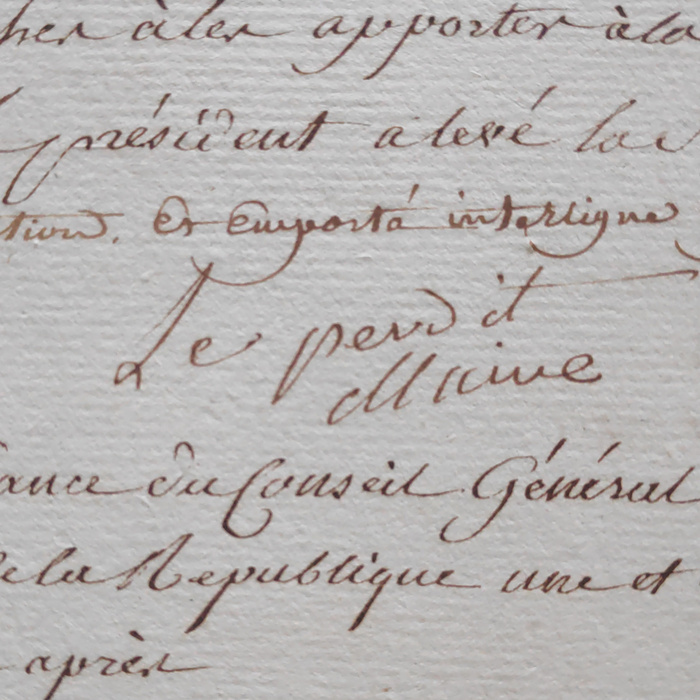 àler apporter à la
président a levé la
tion. Et emporté interligne
Le perdit
Maire
ance du Conseil Général
de la Republique une et
après